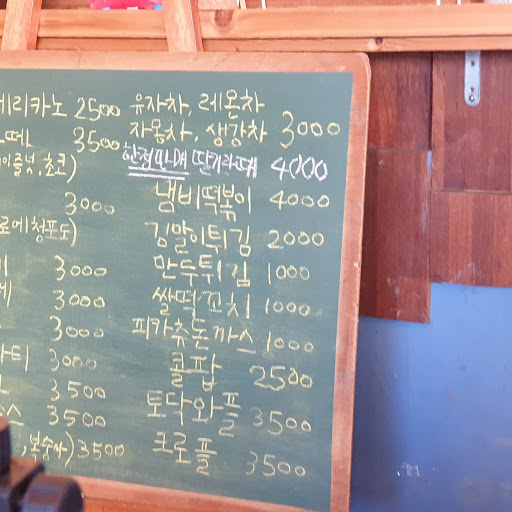 메리카노 2500
떼 3500
이즐넛, 초코)
3000
로에 청포도)
3000
3000
3000
티 3000
3500
스 3500
, 복숭아) 3500
유자차, 레몬차
자몽차, 생강차 3000
한정판매 딸기라떼 4000
냄비떡볶이 4000
김말이튀김 2000
만두튀김 1000
쌀떡꼬치 1000
피카츄돈까스 1000
콜팝 2500
토닥와플 3500
크로플 3500